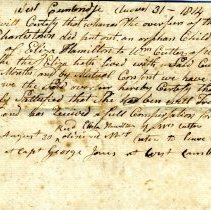 West Cambridge August 31, 1814
will Certify that whereas the overseers of the
Charlestown did put out an orphan Child
of Eliza Hamilton to Wm Cutler of
the Eliza hath lived with Said Cu
Months and by Mutual Consent we have
the Said overseers hereby Certify tha
Satisfied that She has been well
and has received a full Compensation for
Recd Eliza Hamilton of Wm Cutler
August 30 to live
at Capt George Jones at West Camb